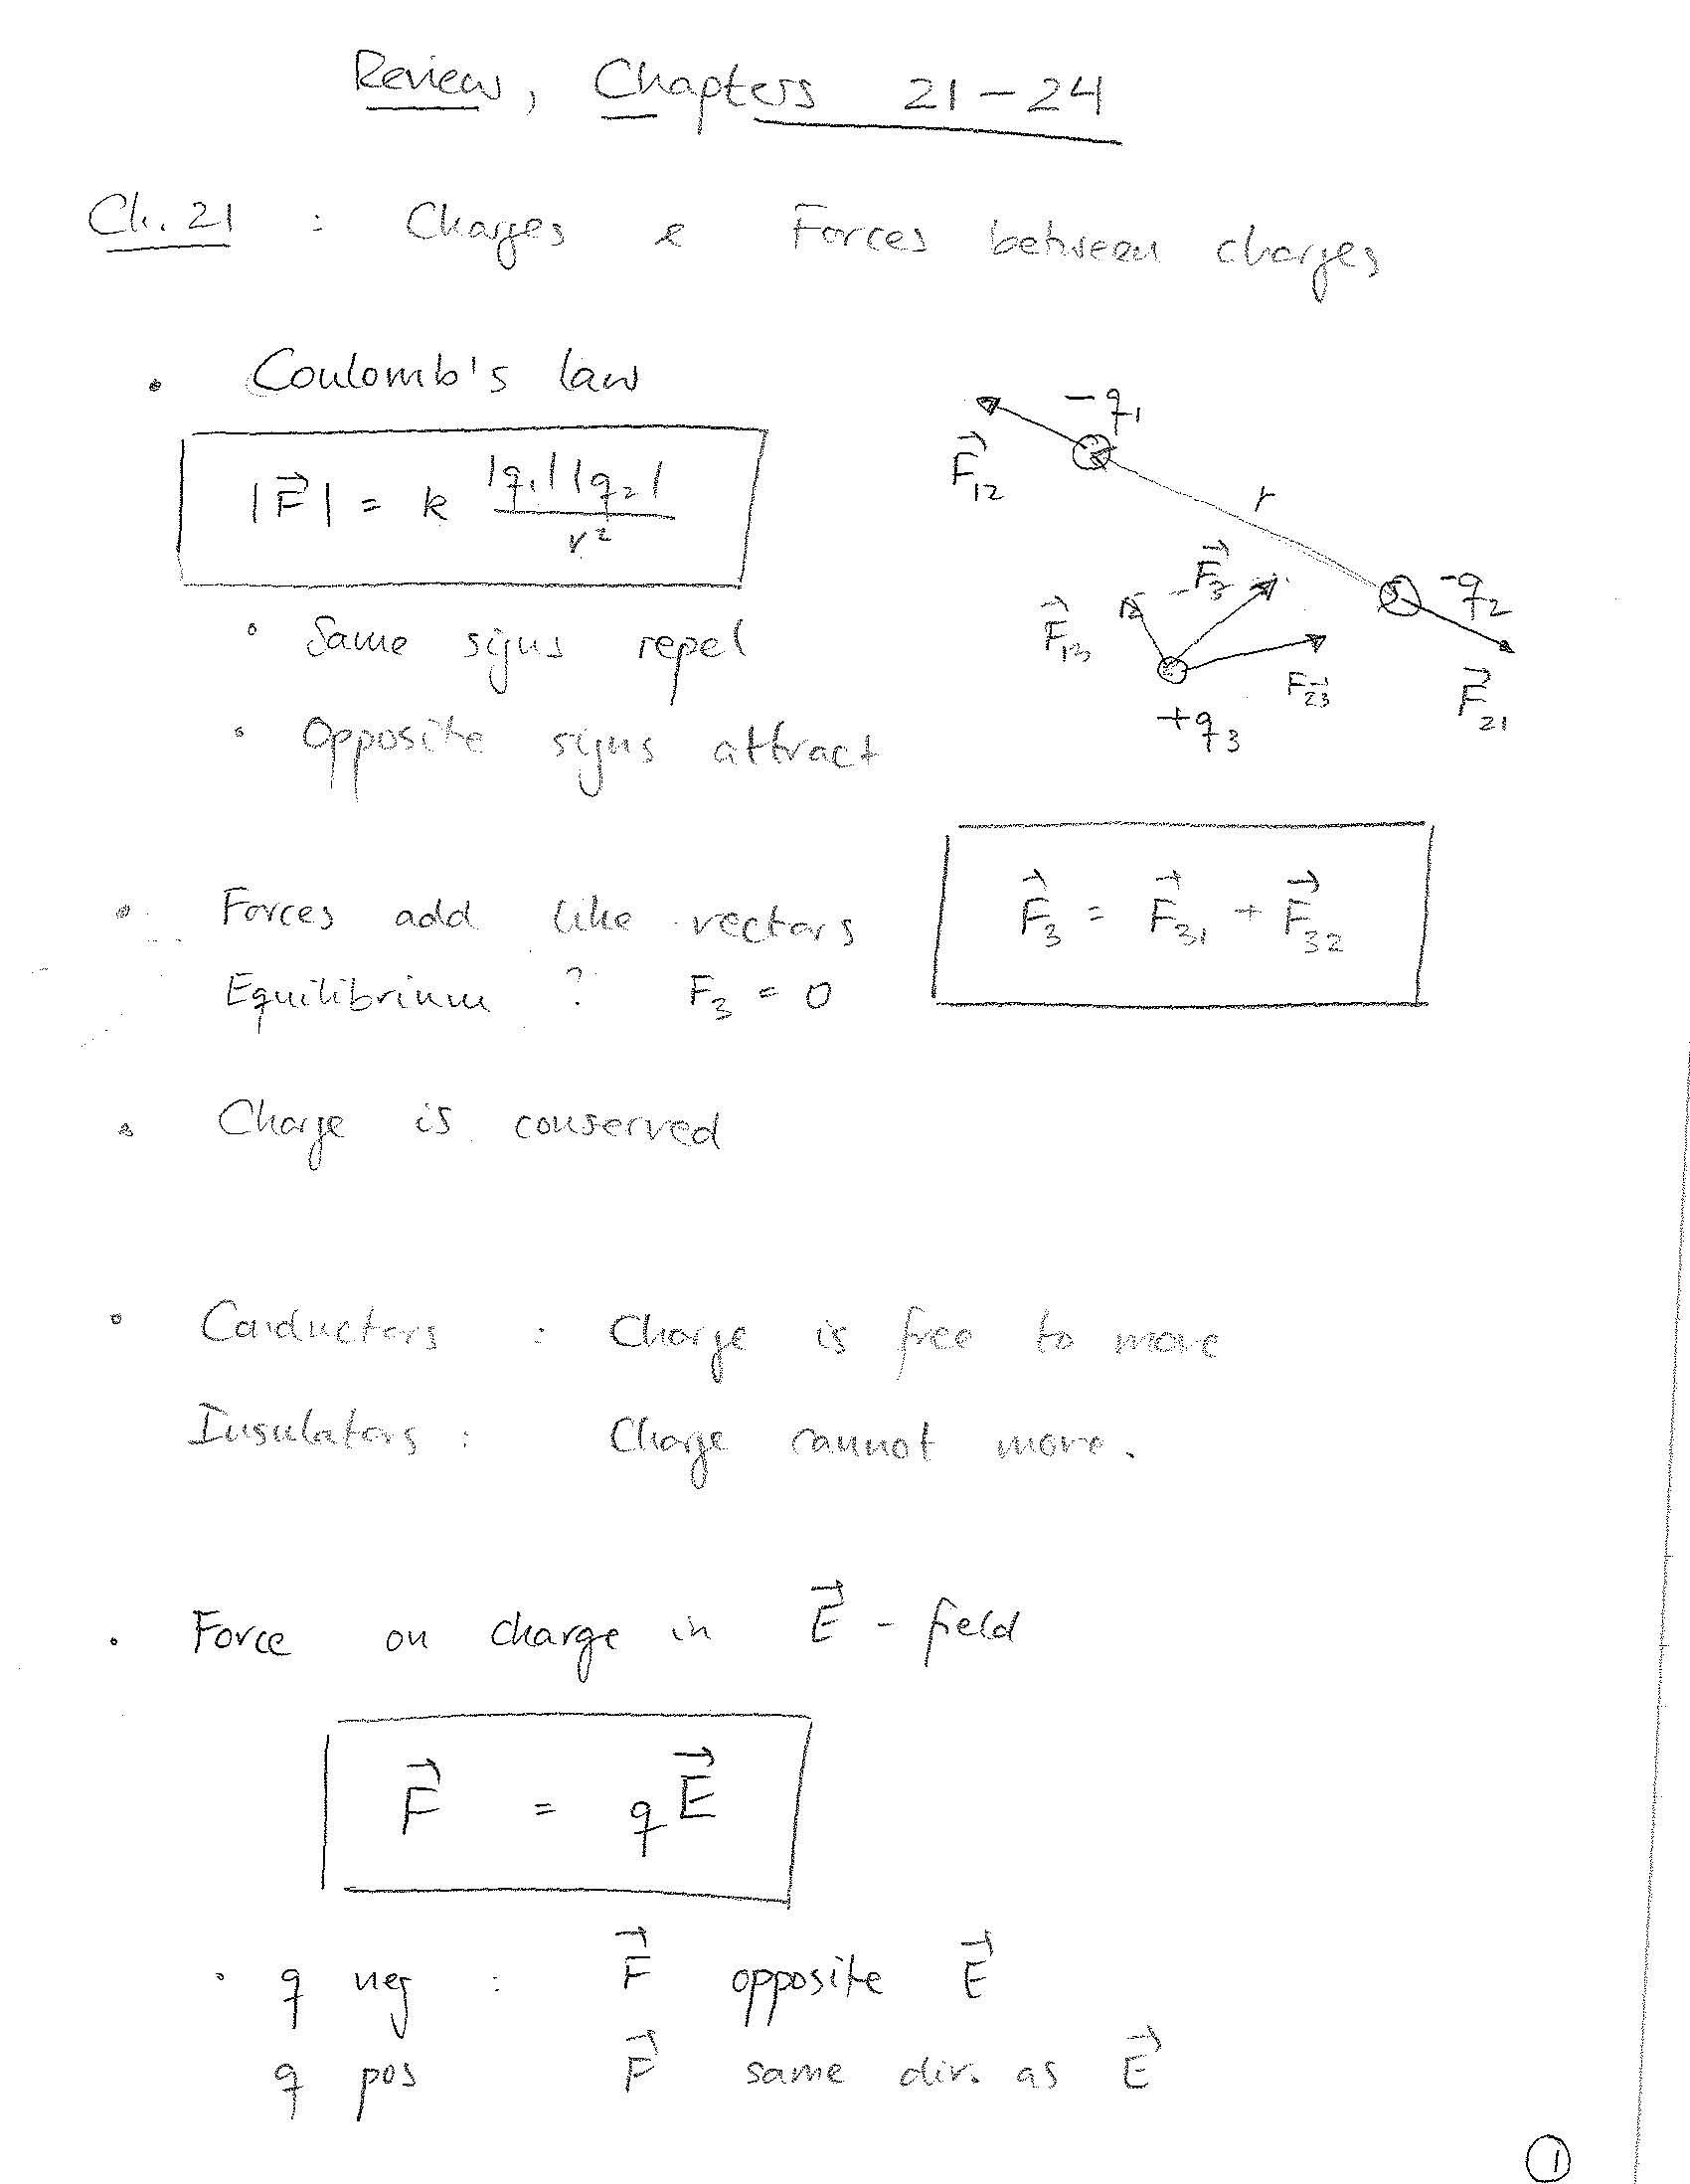 Review, Chapters 21-24
Ch. 21 : Charges & Forces between charges
• Coulomb's law
|F⃗| = k |q₁||q₂| / r²
-q₁
F⃗₁₂
r
-q₂
F⃗₂₁
F⃗₃
F⃗₁₃
F⃗₂₃
+q₃
• Same signs repel
• Opposite signs attract
• Forces add like vectors
F⃗₃ = F⃗₃₁ + F⃗₃₂
Equilibrium ? F₃ = 0
• Charge is conserved
• Conductors : Charge is free to move
Insulators : Charge cannot move.
• Force on charge in E⃗ - field
F⃗ = qE⃗
• q neg : F⃗ opposite E⃗
q pos F⃗ same dir. as E⃗
1